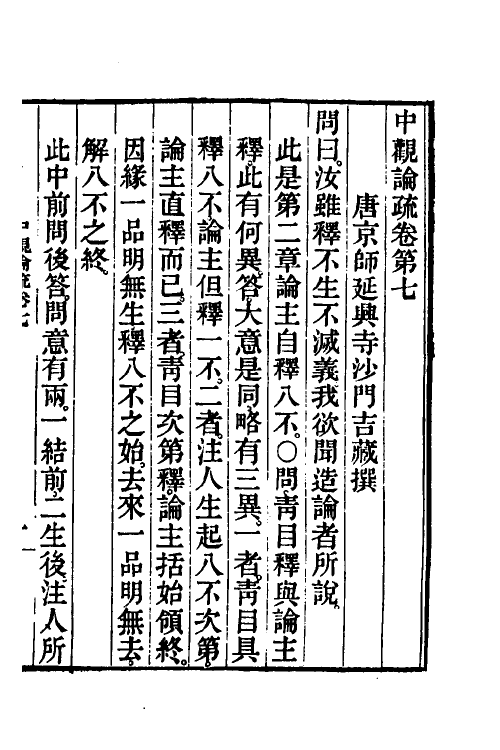 中觀論疏卷第七
唐京師延興寺沙門吉藏撰
問曰。汝雖釋不生不滅義我欲聞造論者所說。
此是第二章論主自釋八不。○問。靑目釋與論主
釋。此有何異。答。大意是同。略有三異。一者。靑目具
釋八不論主但釋一不。二者。注人生起八不次第。
論主直釋而已。三者。靑目次第釋。論主括始領終。
因緣一品明無生釋八不之始。去來一品明無去。
解八不之終。
此中前問後答。問意有兩。一結前。二生後。注人所
中觀論疏卷七
一